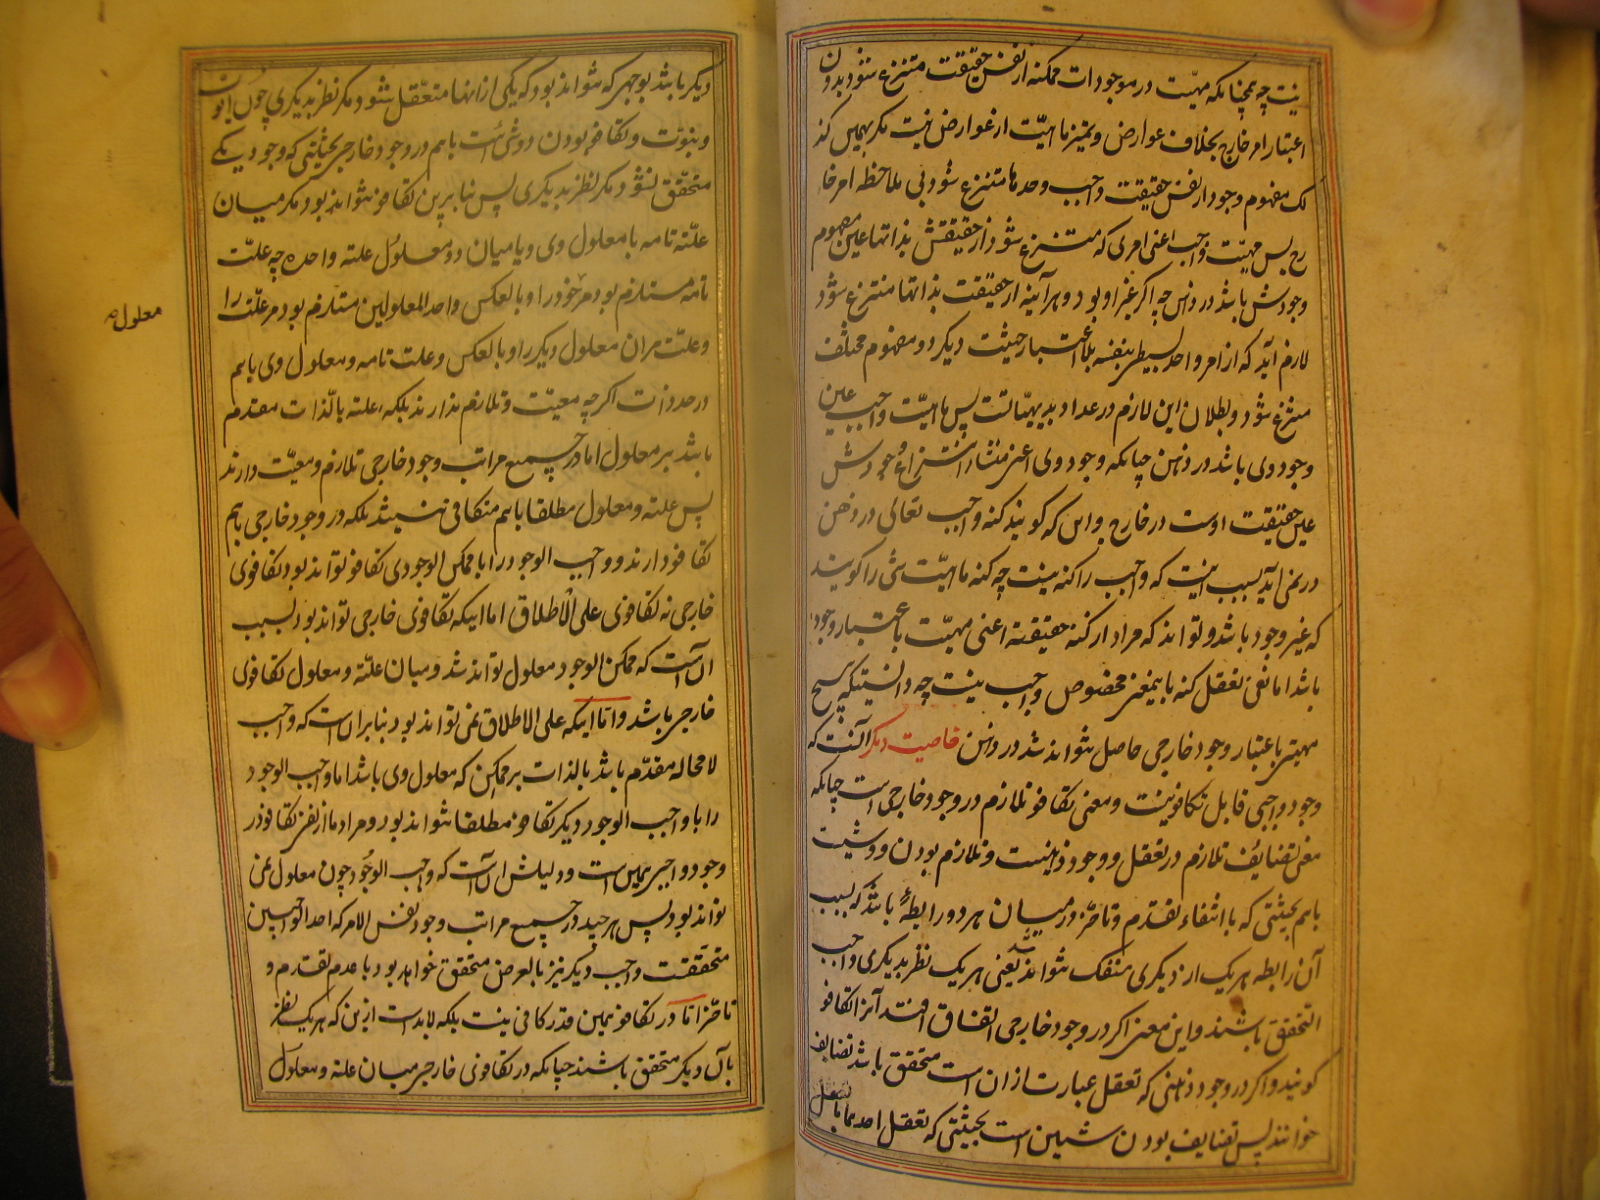 نیست چه همچنانکه مهیّت در موجودات ممکنه از نفس حقیقت متنزع شود بدون
اعتبار امر خارج بخلاف عوارض و تمیز ماهیّت از عوارض نیست مکر بهمین کذ
لک مفهوم وجود از نفس حقیقت واجب وحدها متنزع شود بی ملاحظه امر خا
رج بس مهیّت واجب اعنی امری که متنزع شود از حقیقتش بذاتها عین مفهوم
وجودش باشد در ذهن چه اکر غیر او بود و هر آینه از حقیقت بذاتها متنزع شود
لازم آید که از امر واحد بسیط بنفسه بلا اعتبار حیثیت دیکر دو مفهوم مختلف
متنزع شود و بطلان این لازم در عداد بدیهیّاتست پس ماهیّت واجب عین
وجود وی باشد در ذهن چنانکه وجود وی اعنی منشاء انتزاع وجودش
عین حقیقت اوست در خارج و این که کویند کنه واجب تعالی در ذهن
در نمی آید بسبب اینست که واجب را کنه نیست چه کنه ماهیّت شی را کویند
که غیر وجود باشد و تواند که مراد از کنه حقیقته اعنی مهیّت باعتبار وجود
باشد اما نفی تعقل کنه باینمعنی مخصوص واجب نیست چه دانستیکه هیچ
مهیتی باعتبار وجود خارجی حاصل نتواند شد در ذهن خاصیت دیکر آنست که
وجود واجبی قابل تکافو نیست و معنی تکافو تلازم در وجود خارجی است چنانکه
معنی تضایف تلازم در تعقل و وجود ذهنیست و تلازم بودن دو شیست
باهم بحیثیتی که با انتفاء تقدم و تاخر در میان هر دو رابطهٔ باشد که بسبب
آن رابطه هر یک از دیکری منفک نتواند شد یعنی هر یک نظر بدیکری واجب
التحقق باشند و این معنی اکر در وجود خارجی اتفاق افتد آنرا تکافو
کویند و اکر در وجود ذهنی که تعقل عبارت از ان است متحقق باشد تضایف
خوانند پس تضایف بودن شیئین است بحیثیتی که تعقل احدهما با تعقل
دیکر باشد بوجهی که نتواند بود که یکی از انها متعّقل شود مکر نظر بدیکری چون ابوّت
و بنوّت و تکافو بودن دو شیء است باهم در وجود خارجی بحیثیتی که وجود یکی
متحقق نشود مکر نظر بدیکری پس بنا برین تکافو نتواند بود مکر میان
علّته تامه با معلول وی و یا میان دو معلول علته واحده چه علّت
تامه مستلزم بود مر خود را و بالعکس واحد المعلولین مستلزم بود مر علّت را
معلول صح
و علّت مر ان معلول دیکر را و بالعکس و علت تامه و معلول وی باهم
در حد ذات اکرچه معیّت و تلازم ندارند بلکه علته بالّذات مقدم
باشد بر معلول اما در جمیع مراتب وجود خارجی تلازم و معیّت دارند
پس علته و معلول مطلقا باهم متکافی نیستند بلکه در وجود خارجی باهم
تکافو دارند و واجب الوجود را با ممکن الوجودی تکافو تواند بود تکافوی
خارجی نه تکافوی علی الاطلاق اما اینکه تکافوی خارجی تواند بود بسبب
آن است که ممکن الوجود معلول تواند شد و میان علته و معلول تکافوی
خارجی باشد و اما اینکه علی الاطلاق نمی تواند بود بنا بر ان است که واجب
لا محاله مقدّم باشد بالذات بر ممکن که معلول وی باشد اما واجب الوجود
را با واجب الوجود دیکر تکافو مطلقا نتواند بود و مراد ما از نفی تکافو در
وجود واجبی همین است و دلیلش ان است که واجب الوجود چون معلول نمی
تواند بود پس هر چند در جمیع مراتب وجود نفس الامر که احد الواجبین
متحققست واجب دیکر نیز بالعرض متحقق خواهد بود با عدم تقدم و
تاخّر اما در تکافو همین قدر کافی نیست بلکه لابد است ازین که هر یک نظر
بآن دیکر متحقق باشند چنانکه در تکافوی خارجی میان علته و معلول